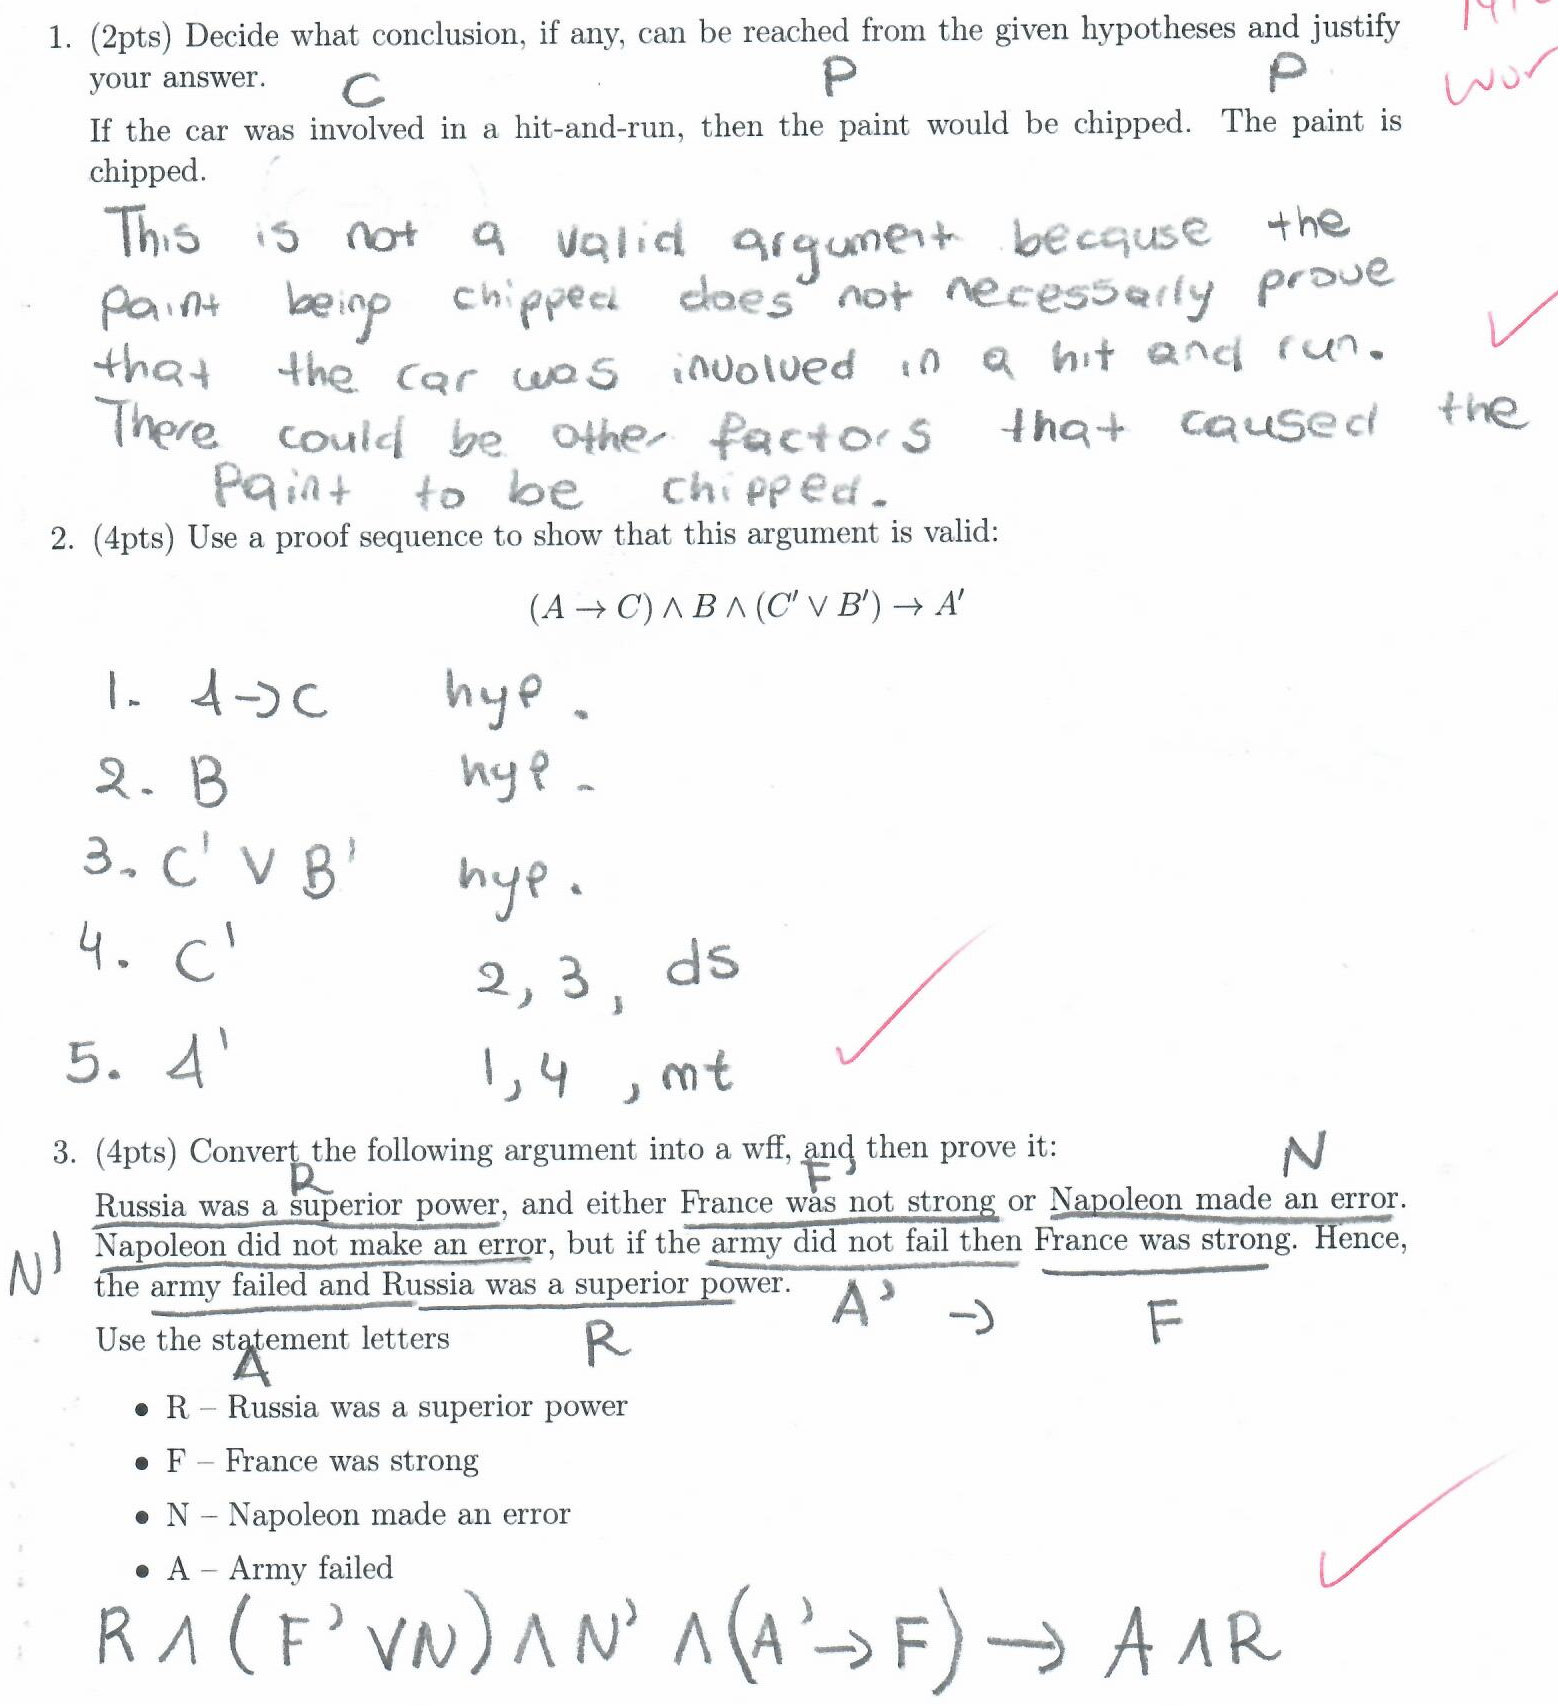 1. (2pts) Decide what conclusion, if any, can be reached from the given hypotheses and justify
your answer.
C P P
If the car was involved in a hit-and-run, then the paint would be chipped. The paint is
chipped.
This is not a valid argument because the
paint being chipped does not necessarly prove
that the car was involved in a hit and run.
There could be other factors that caused the
Paint to be chipped.
2. (4pts) Use a proof sequence to show that this argument is valid:
(A → C) ∧ B ∧ (C′ ∨ B′) → A′
1. A→C hyp.
2. B hyp.
3. C' ∨ B' hyp.
4. C' 2, 3, ds
5. A' 1, 4, mt
3. (4pts) Convert the following argument into a wff, and then prove it:
R F' N
Russia was a superior power, and either France was not strong or Napoleon made an error.
N' Napoleon did not make an error, but if the army did not fail then France was strong. Hence,
the army failed and Russia was a superior power.
A' → F
Use the statement letters
A R
• R – Russia was a superior power
• F – France was strong
• N – Napoleon made an error
• A – Army failed
R ∧ (F' ∨ N) ∧ N' ∧ (A' → F) → A ∧ R